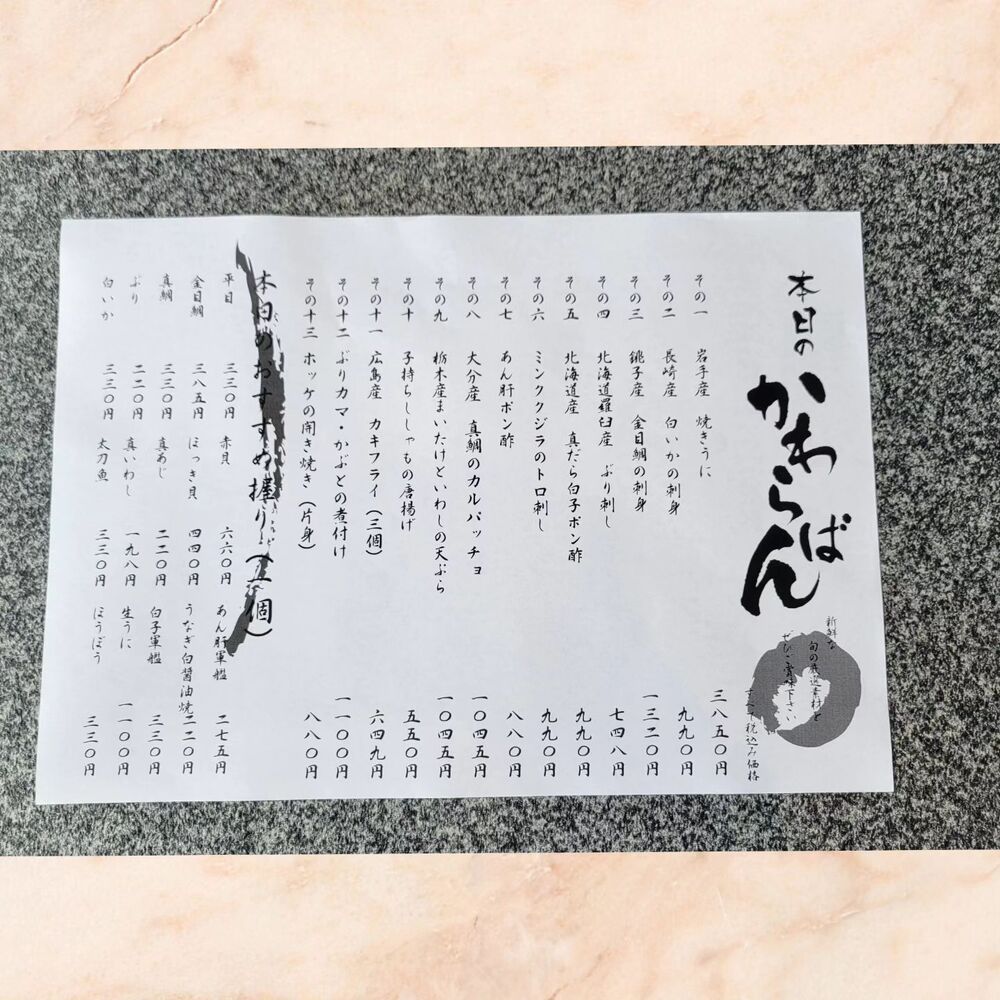 本日の
かわらばん
新鮮な
旬の厳選素材を
ぜひご賞味下さい
すべて税込み価格
その一 岩手産 焼きうに 三八五〇円
その二 長崎産 白いかの刺身 九九〇円
その三 銚子産 金目鯛の刺身 一三二〇円
その四 北海道羅臼産 ぶり刺し 七四八円
その五 北海道産 真だら白子ポン酢 九九〇円
その六 ミンククジラのトロ刺し 九九〇円
その七 あん肝ポン酢 八八〇円
その八 大分産 真鯛のカルパッチョ 一〇四五円
その九 栃木産まいたけといわしの天ぷら 一〇四五円
その十 子持ちししゃもの唐揚げ 五五〇円
その十一 広島産 カキフライ(三個) 六四九円
その十二 ぶりカマ・かぶとの煮付け 一一〇〇円
その十三 ホッケの開き焼き(片身) 八八〇円
本日のおすすめ握り(一個)
平目 三三〇円 赤貝 六六〇円 あん肝軍艦 二七五円
金目鯛 三八五円 ほっき貝 四四〇円 うなぎ白醤油焼 二二〇円
真鯛 三三〇円 真あじ 二二〇円 白子軍艦 三三〇円
ぶり 二二〇円 真いわし 一九八円 生うに 一一〇〇円
白いか 三三〇円 太刀魚 三三〇円 ほうぼう 三三〇円